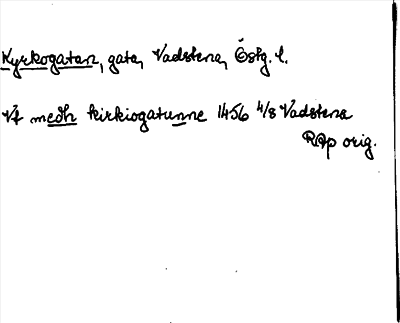 Kyrkogatan, gata, Vadstena, Östg. l.
vt medh kirkiogatunne 1456 4/8 Vadstena
RAp orig.